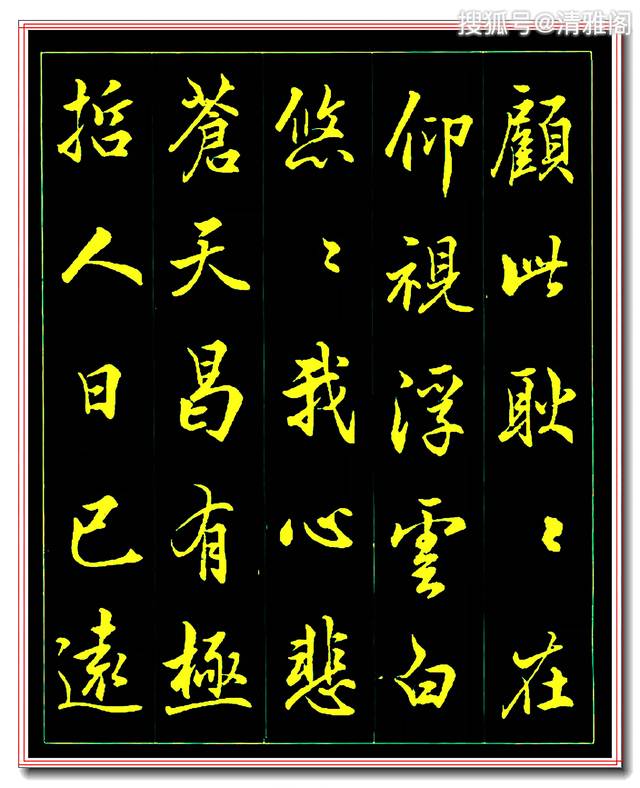 搜狐号@清雅阁
顧此耿〻在
仰視浮雲白
悠〻我心悲
蒼天曷有極
哲人日已遠